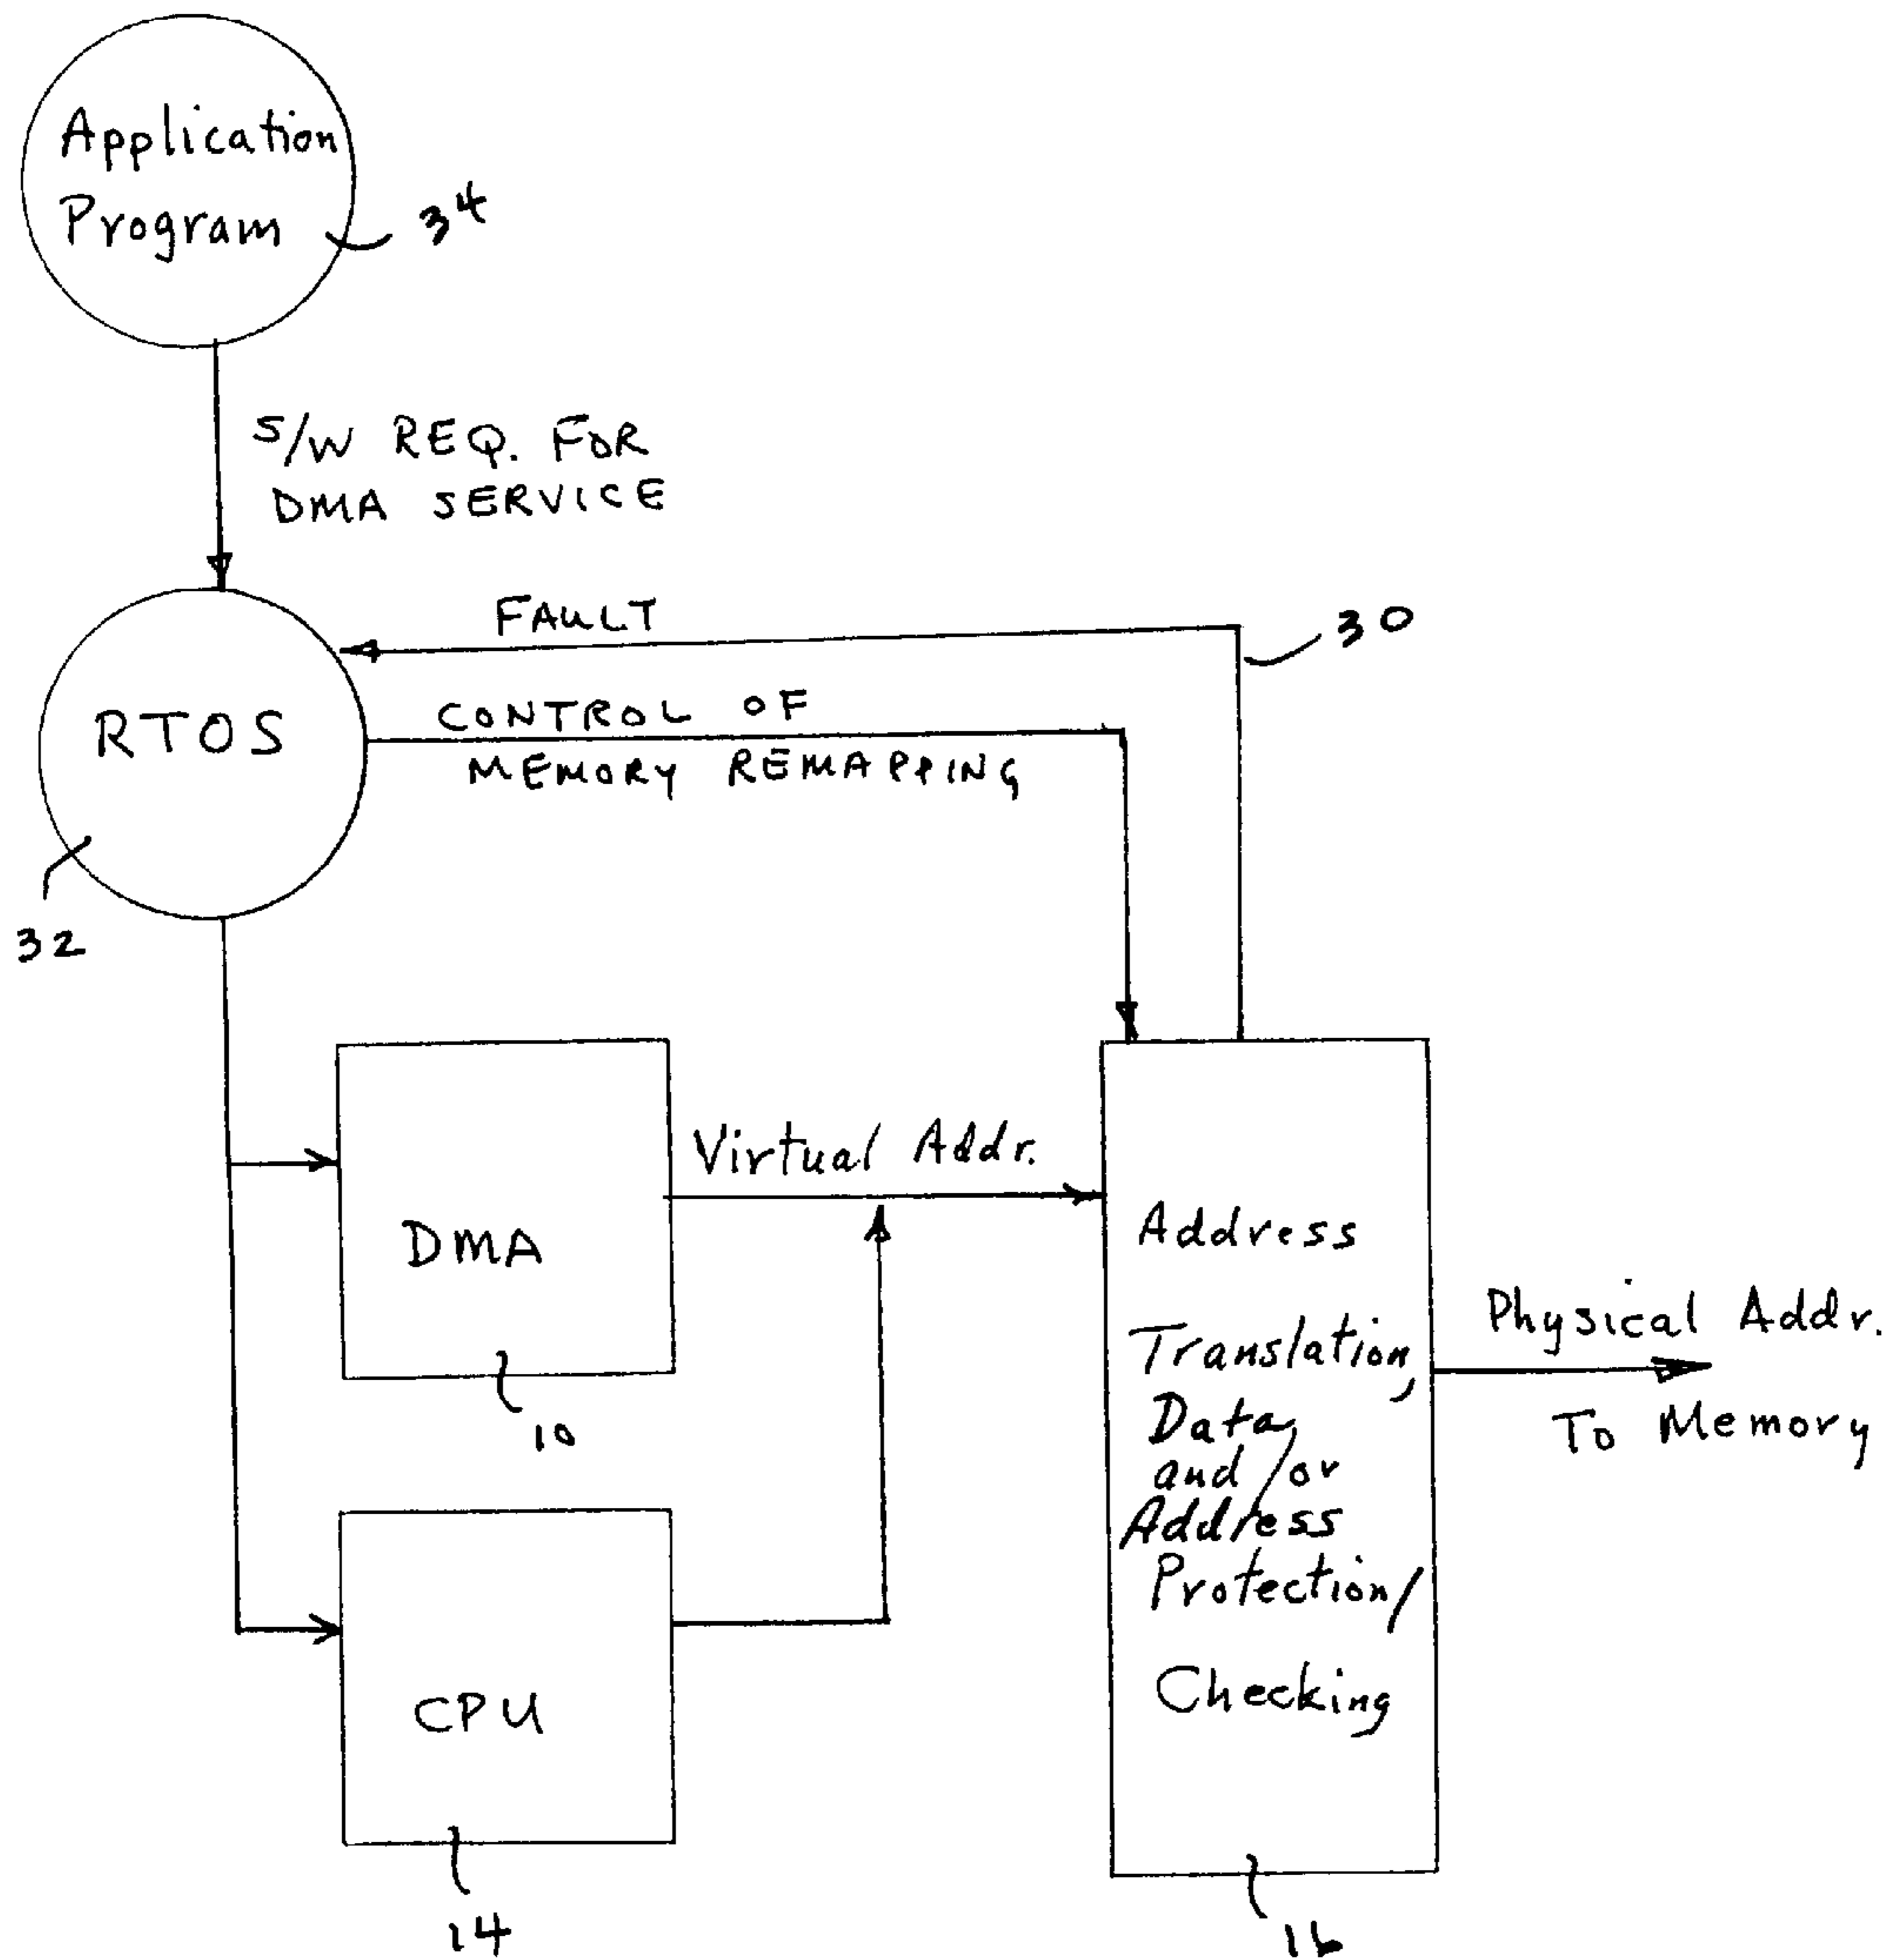 Application
Program
34
S/W REQ. FOR
DMA SERVICE
FAULT
30
CONTROL OF
MEMORY REMAPPING
RTOS
32
Virtual Addr.
DMA
10
Address
Translation,
Data,
and/or
Address
Protection/
Checking
Physical Addr.
To Memory
CPU
14
16